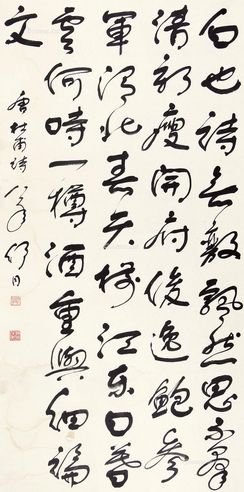 白也詩無敵飄然思不羣
清新庾開府俊逸鮑參
軍渭北春天樹江東日暮
雲何時一樽酒重與細論
文
唐杜甫詩 舒同